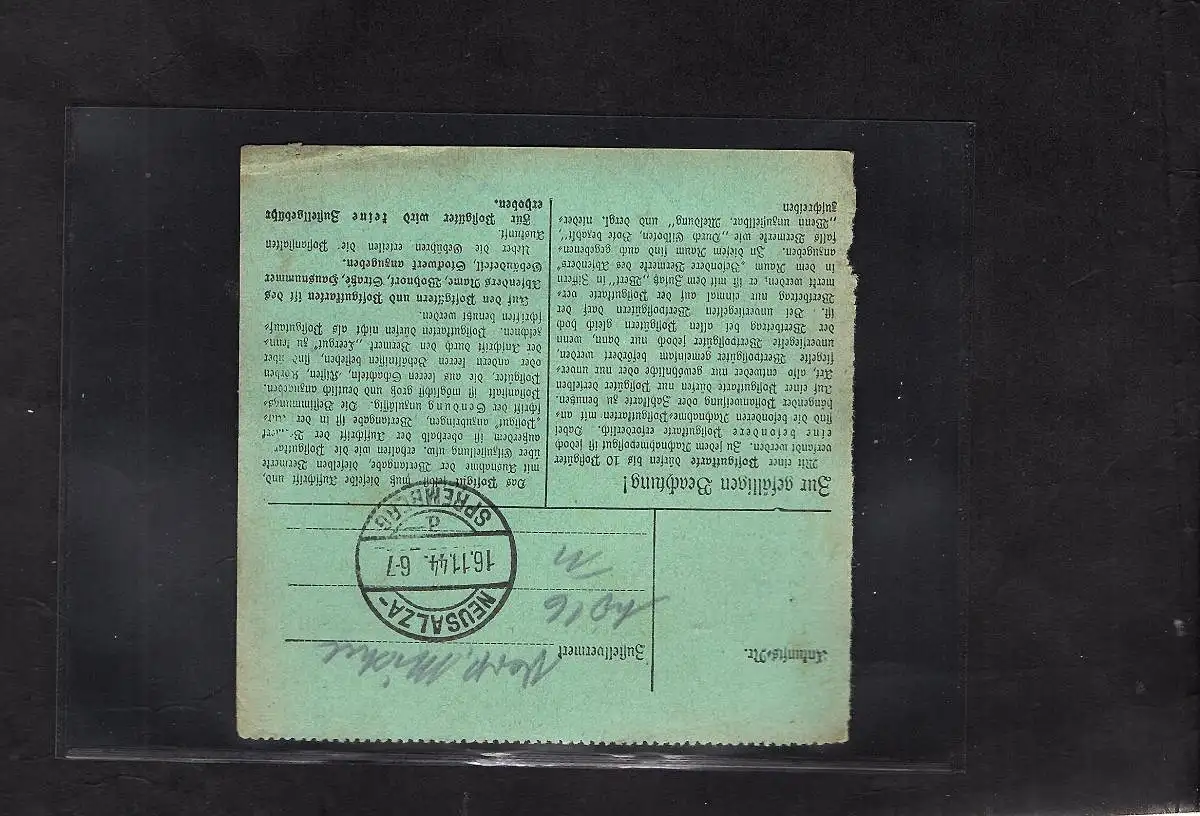 Ankunfts-Nr.
Zustellvermerk
NEUSALZA-
16.11.44. 6-7
d
SPREMBERG
Zur gefälligen Beachtung!
Mit einer Postgutkarte dürfen bis 10 Postgüter
versandt werden. Zu jedem Nachnahmepostgut ist jedoch
eine besondere Postgutkarte erforderlich. Dabei
sind die besonderen Nachnahme-Postgutkarten mit an-
hängender Postanweisung oder Zahlkarte zu benutzen.
Auf einer Postgutkarte dürfen nur Postgüter derselben
Art, also entweder nur gewöhnliche oder nur unver-
siegelte Wertpostgüter gemeinsam befördert werden,
unversiegelte Wertpostgüter jedoch nur dann, wenn
der Wertbetrag bei allen Postgütern gleich hoch
ist. Bei unversiegelten Wertpostgütern darf der
Wertbetrag nur einmal auf der Postgutkarte ver-
merkt werden, er ist mit dem Zusatz „Wert“ in Ziffern
in dem Raum „Besondere Vermerke des Absenders“
anzugeben. In diesem Raum sind auch gegebenen-
falls Vermerke wie „Durch Eilboten, Bote bezahlt“,
„Wenn unzustellbar, Meldung“ und dergl. nieder-
zuschreiben
Das Postgut selbst muß dieselbe Aufschrift und,
mit Ausnahme der Wertangabe, dieselben Vermerke
über Eilzustellung usw. erhalten wie die Postgutkarte,
außerdem ist oberhalb der Aufschrift der
„Postgut“ anzubringen, Wertangabe ist in der
schrift der Sendung unzulässig. Die Bestimmungs-
Postanstalt ist möglichst groß und deutlich anzugeben.
Postgüter, die aus leeren Schachteln, Kisten, Körben
oder andern leeren Behältnissen bestehen, sind über
der Anschrift durch den Vermerk „Leergut“ zu kenn-
zeichnen. Postgutkarten dürfen nicht als Postgutauf-
schriften benutzt werden.
Auf den Postgütern und Postgutkarten ist des
Absenders Name, Wohnort, Straße, Hausnummer
Gebäudeteil, Stockwert anzugeben.
Ueber die Gebühren erteilen die Postanstalten
Auskunft.
Für Postgüter wird keine Zustellgebühr
erhoben.